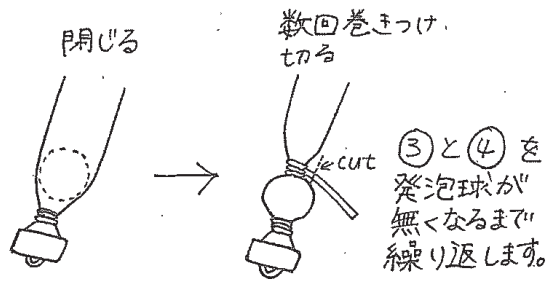 閉じる
数回巻きつけ、
切る
cut
③と④を
発泡球が
無くなるまで
繰り返します。